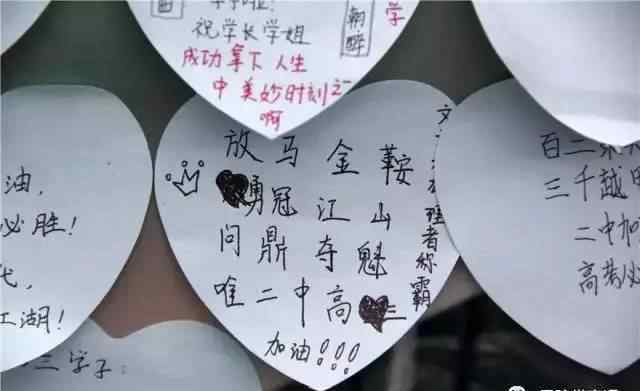 祝学长学姐
成功拿下人生
中美妙时刻之一
啊
朝醉
学
放马金鞍
勇冠江山
问鼎夺魅
唯二中高三
加油!!!
理者称霸
油,
必胜!
江湖!
三学子:
百二秦
三千越甲
二中加
高考必